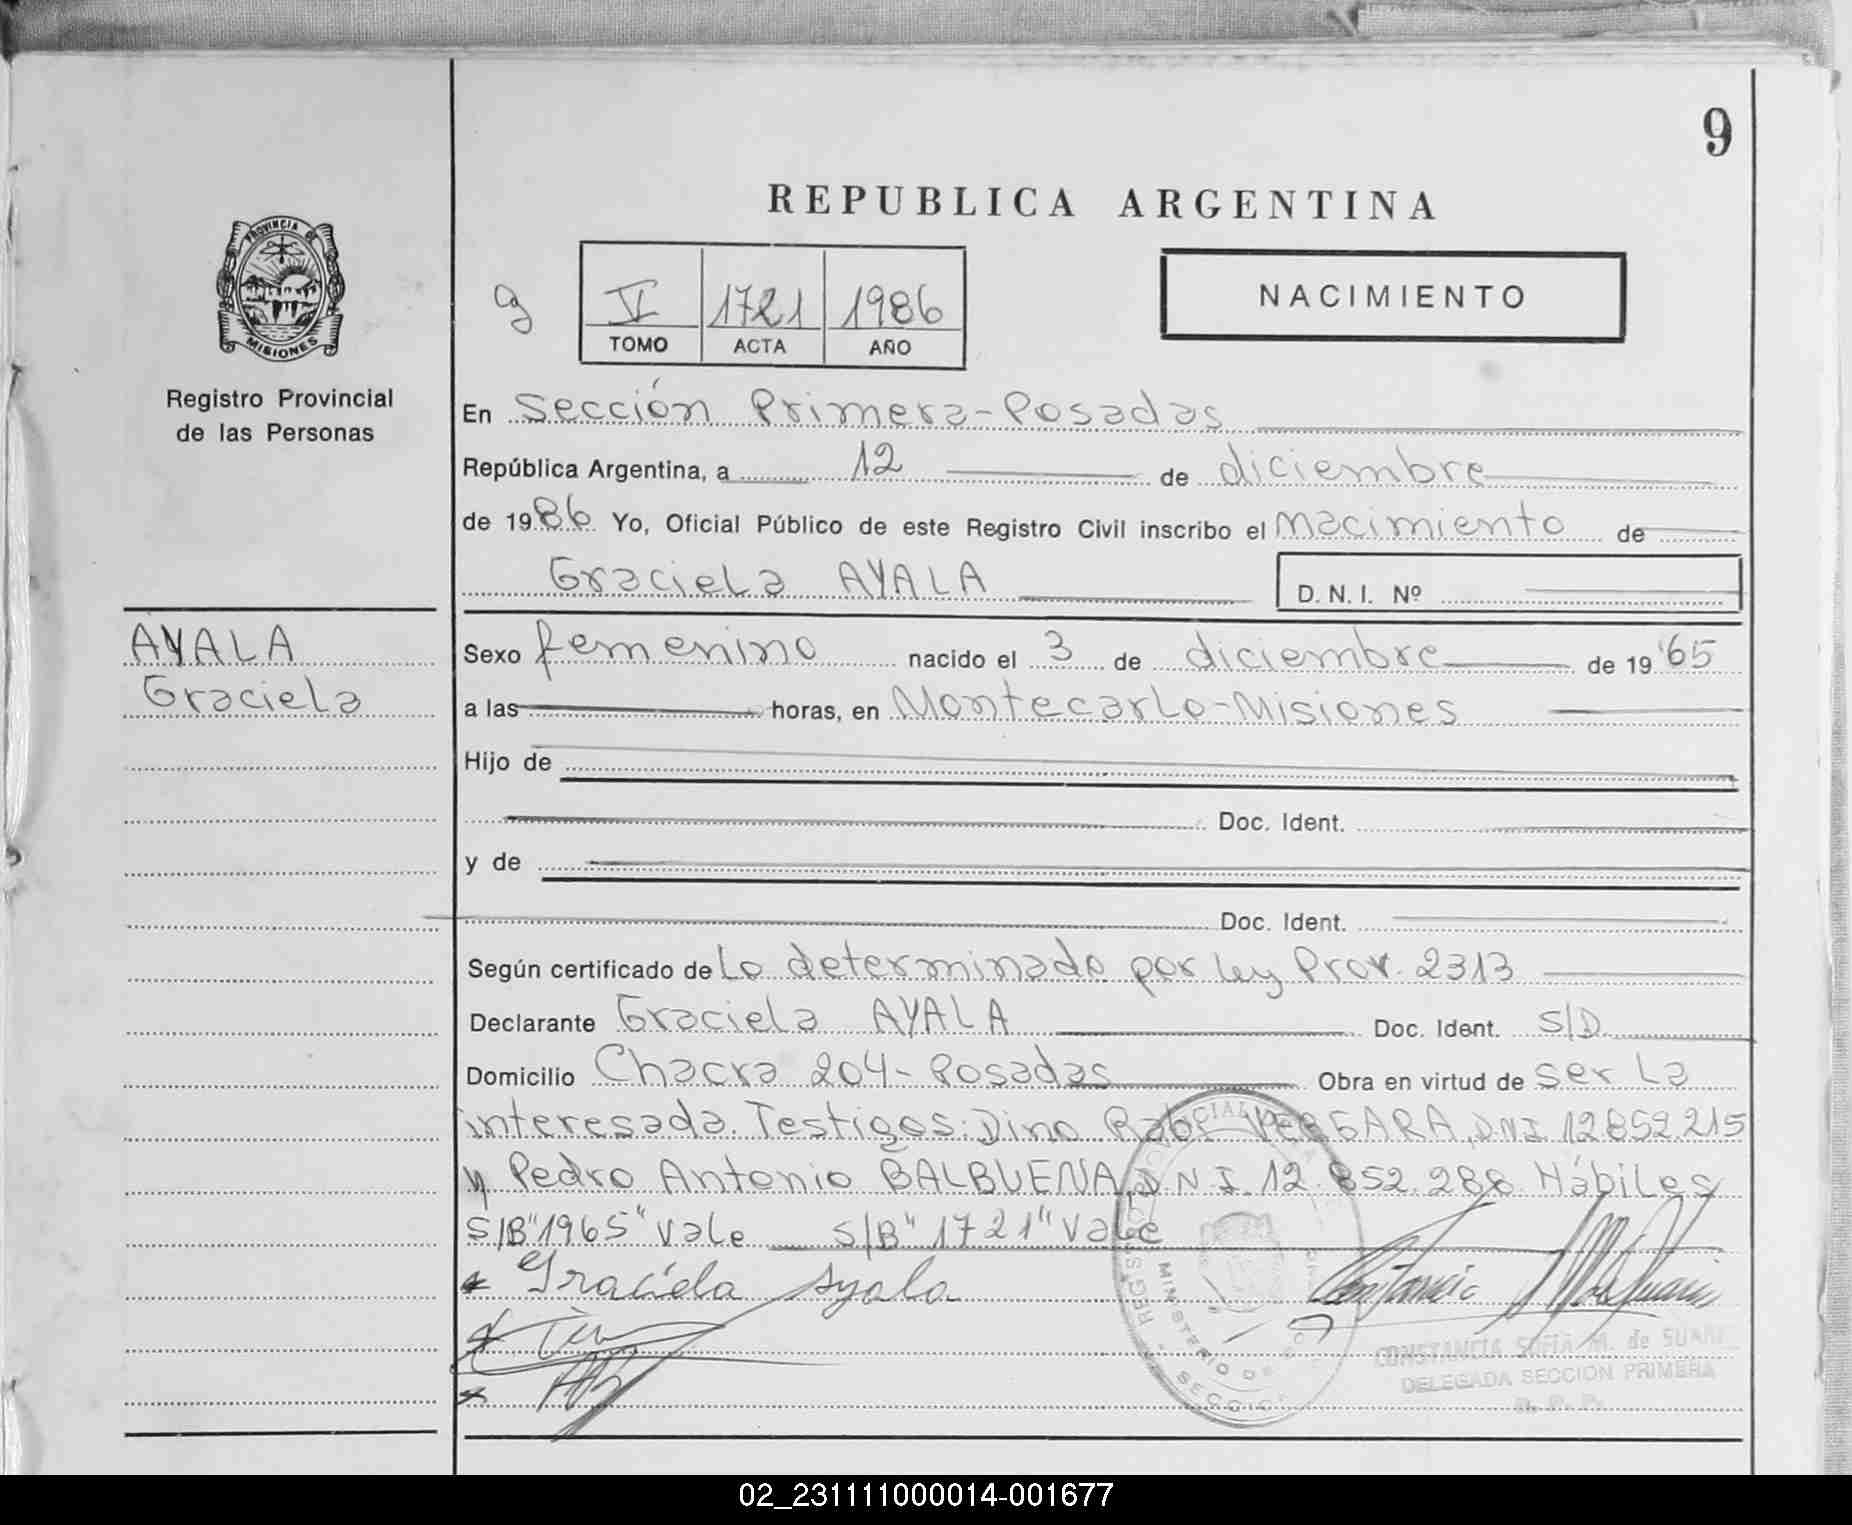 9
REPUBLICA ARGENTINA
PROVINCIA DE
MISIONES
Registro Provincial
de las Personas
9
V 1721 1986
TOMO ACTA AÑO
NACIMIENTO
En Sección Primera-Posadas
República Argentina, a 12 de diciembre
de 1986 Yo, Oficial Público de este Registro Civil inscribo el nacimiento de
Graciela AYALA D.N.I. Nº
AYALA
Graciela
Sexo femenino nacido el 3 de diciembre de 1965
a las horas, en Montecarlo-Misiones
Hijo de
Doc. Ident.
y de
Doc. Ident.
Según certificado de Lo determinado por Ley Prov. 2313
Declarante Graciela AYALA Doc. Ident. S/D
Domicilio Chacra 204-Posadas Obra en virtud de ser La
interesada. Testigos: Dino VERGARA, DNI 12.852.215
y Pedro Antonio BALBUENA, DNI. 12.852.288 Hábiles
S/B "1965" Vale S/B "1721" Vale
Graciela Ayala
MINISTERIO DE
CONSTANCIA SOFIA M. de SUAREZ
DELEGADA SECCION PRIMERA
R. P. P.
02_231111000014-001677